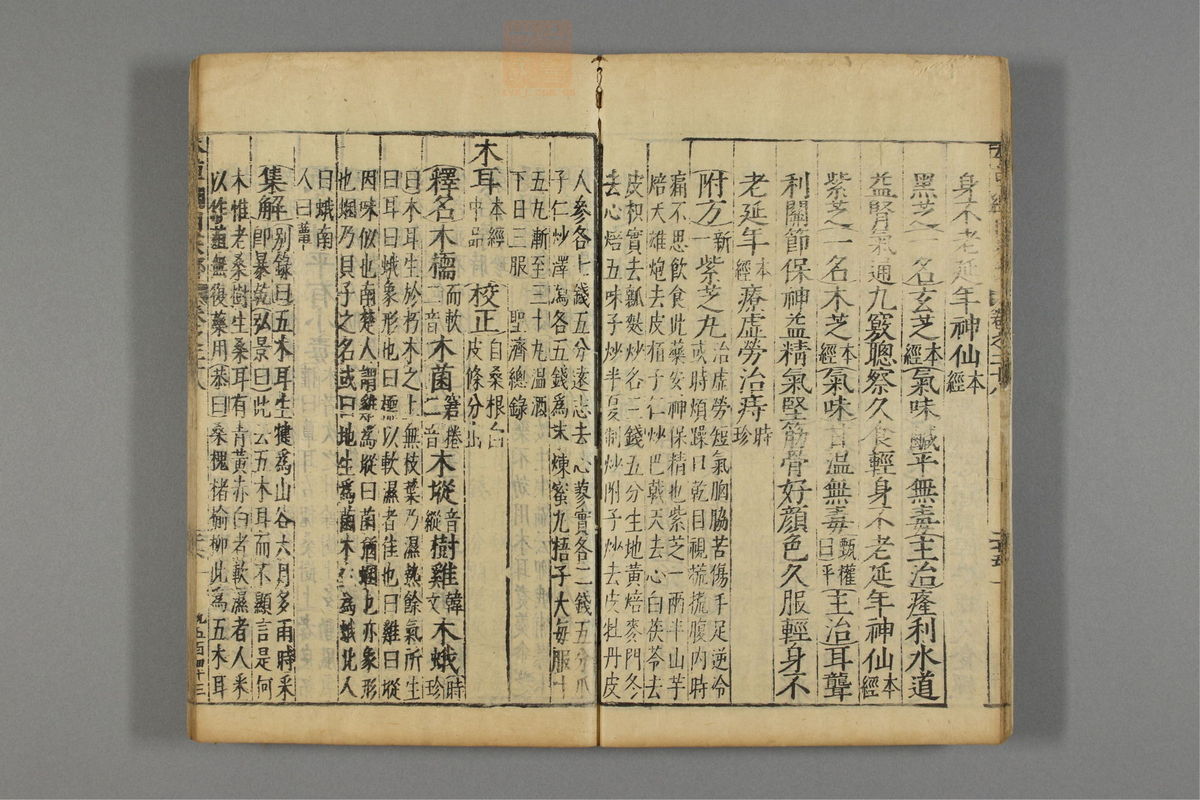 身不老延年神仙本經
黑芝一名玄芝本經氣味鹹平無毒主治癃利水道
益腎氣通九竅聰察久食輕身不老延年神仙本經
紫芝一名木芝本經氣味甘溫無毒甄權曰平主治耳聾
利關節保神益精氣堅筋骨好顏色久服輕身不
老延年本經療虛勞治痔時珍
附方新一紫芝丸治虛勞短氣胸脇苦傷手足逆冷
或時煩躁口乾目視䀮䀮腹內時
痛不思飲食此藥安神保精也紫芝一兩半山芋
焙天雄炮去皮栢子仁炒巴戟天去心白茯苓去
皮枳實去瓤麩炒各三錢五分生地黃焙麥門冬
去心焙五味子炒半夏制炒附子炒去皮牡丹皮
人參各七錢五分遠志去心蓼實各二錢五分瓜
子仁炒澤瀉各五錢爲末煉蜜丸梧子大每服十
五丸漸至三十丸溫酒
下日三服 聖濟總錄
木耳本經中品 校正自桑根白皮條分出
釋名木檽而軟二音木菌窘捲二音木㙡音縱樹雞韓文木蛾時珍
曰木耳生於朽木之上無枝葉乃濕熱餘氣所生
曰耳曰蛾象形也曰檽以軟濕者佳也曰雞曰㙡
因味似也南楚人謂雞爲㙡曰菌猶蜠也亦象形
也蜠乃貝子之名或曰地生爲菌木生爲蛾北人
曰蛾南
人曰蕈
集解別錄曰五木耳生犍爲山谷六月多雨時采
即暴乾弘景曰此云五木耳而不顯言是何
木惟老桑樹生桑耳有青黃赤白者軟濕者人采
以作葅無復藥用恭曰桑槐楮榆柳此爲五木耳